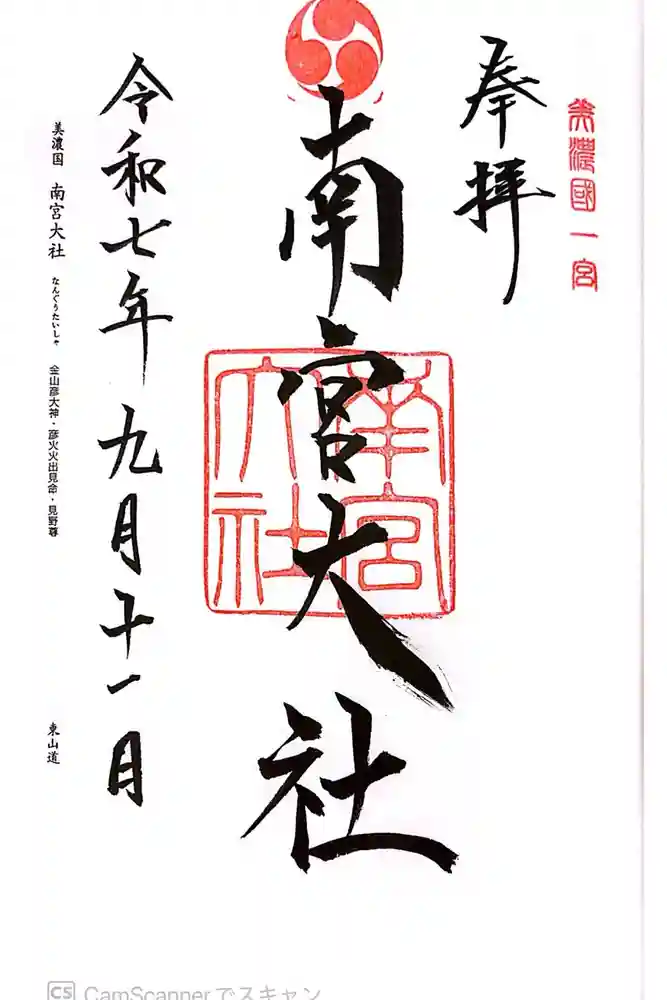 美濃國一宮
奉拝
南宮大社
南宮大社
令和七年九月十一日
美濃国 南宮大社 なんぐうたいしゃ 金山彦大神・彦火火出見命・見野尊 東山道
CS CamScannerでスキャン